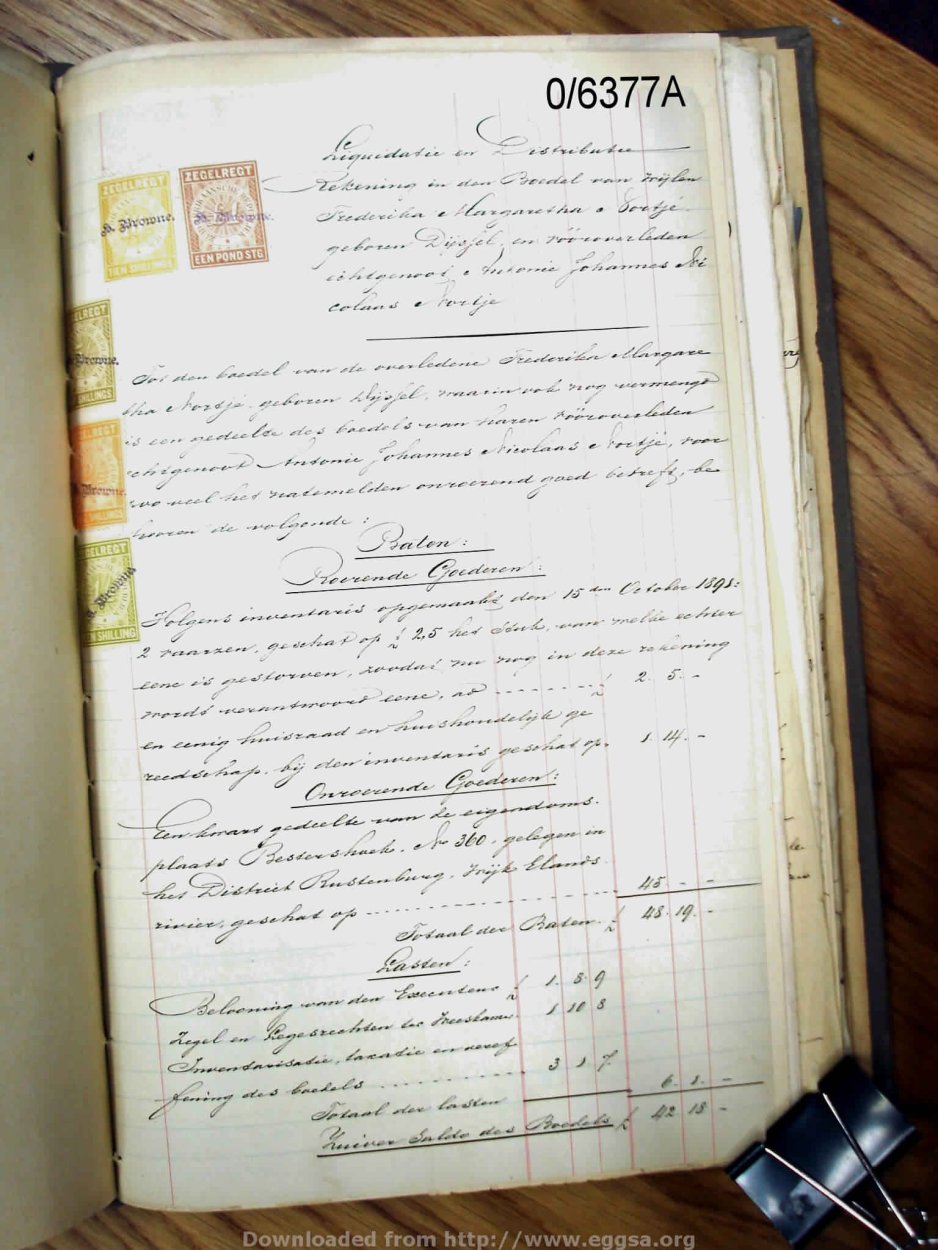 0/6377A
Liquidatie en Distributie
Rekening in den Boedel van wijlen
Frederika Margaretha Nortje
geboren Dijssel, en vooroverleden
echtgenoot Antonie Johannes Ni
colaas Nortje
ZEGELREGT
B. Browne.
TIEN SHILLINGS
ZEGELREGT
B. Browne.
EEN POND STG
ELREGT
Browne.
SHILLINGS
ELREGT
Browne
SHILLINGS
ZEGELREGT
B. Browne
EN SHILLING
Tot den boedel van de overledene Frederika Margare
tha Nortje geboren Dijssel, waarin ook nog vermengd
is een gedeelte des boedels van haren vooroverleden
echtgenoot Antonie Johannes Nicolaas Nortje, voor
zoo veel het natemelden onroerend goed betreft, be
hooren de volgende:
Baten:
Roerende Goederen:
Volgens inventaris opgemaakt den 15den October 1898:
2 vaarzen, geschat op £ 2,5 het stuk, van welke echter
eene is gestorven, zoodat nu nog in deze rekening
wordt verantwoord eene, ad £ 2. 5. -
en eenig huisraad en huishoudelijk ge
reedschap, bij den inventaris geschat op. 1 14. -
Onroerende Goederen:
Een kwart gedeelte van de eigendoms.
plaats Bestershoek, No 360, gelegen in
het District Rustenburg, Wijk Elands
rivier, geschat op 45 - -
Totaal der Baten £ 48. 19. -
Lasten:
Belooning van den Executeur £ 1. 8. 9
Zegel en Legesrechten ter Weeskamer 1 10 8
Inventarisatie, taxatie en veref
fening des boedels 3 1. 7
6. 1. -
Totaal der lasten
Zuiver Saldo des Boedels £ 42 18 -
Downloaded from http://www.eggsa.org